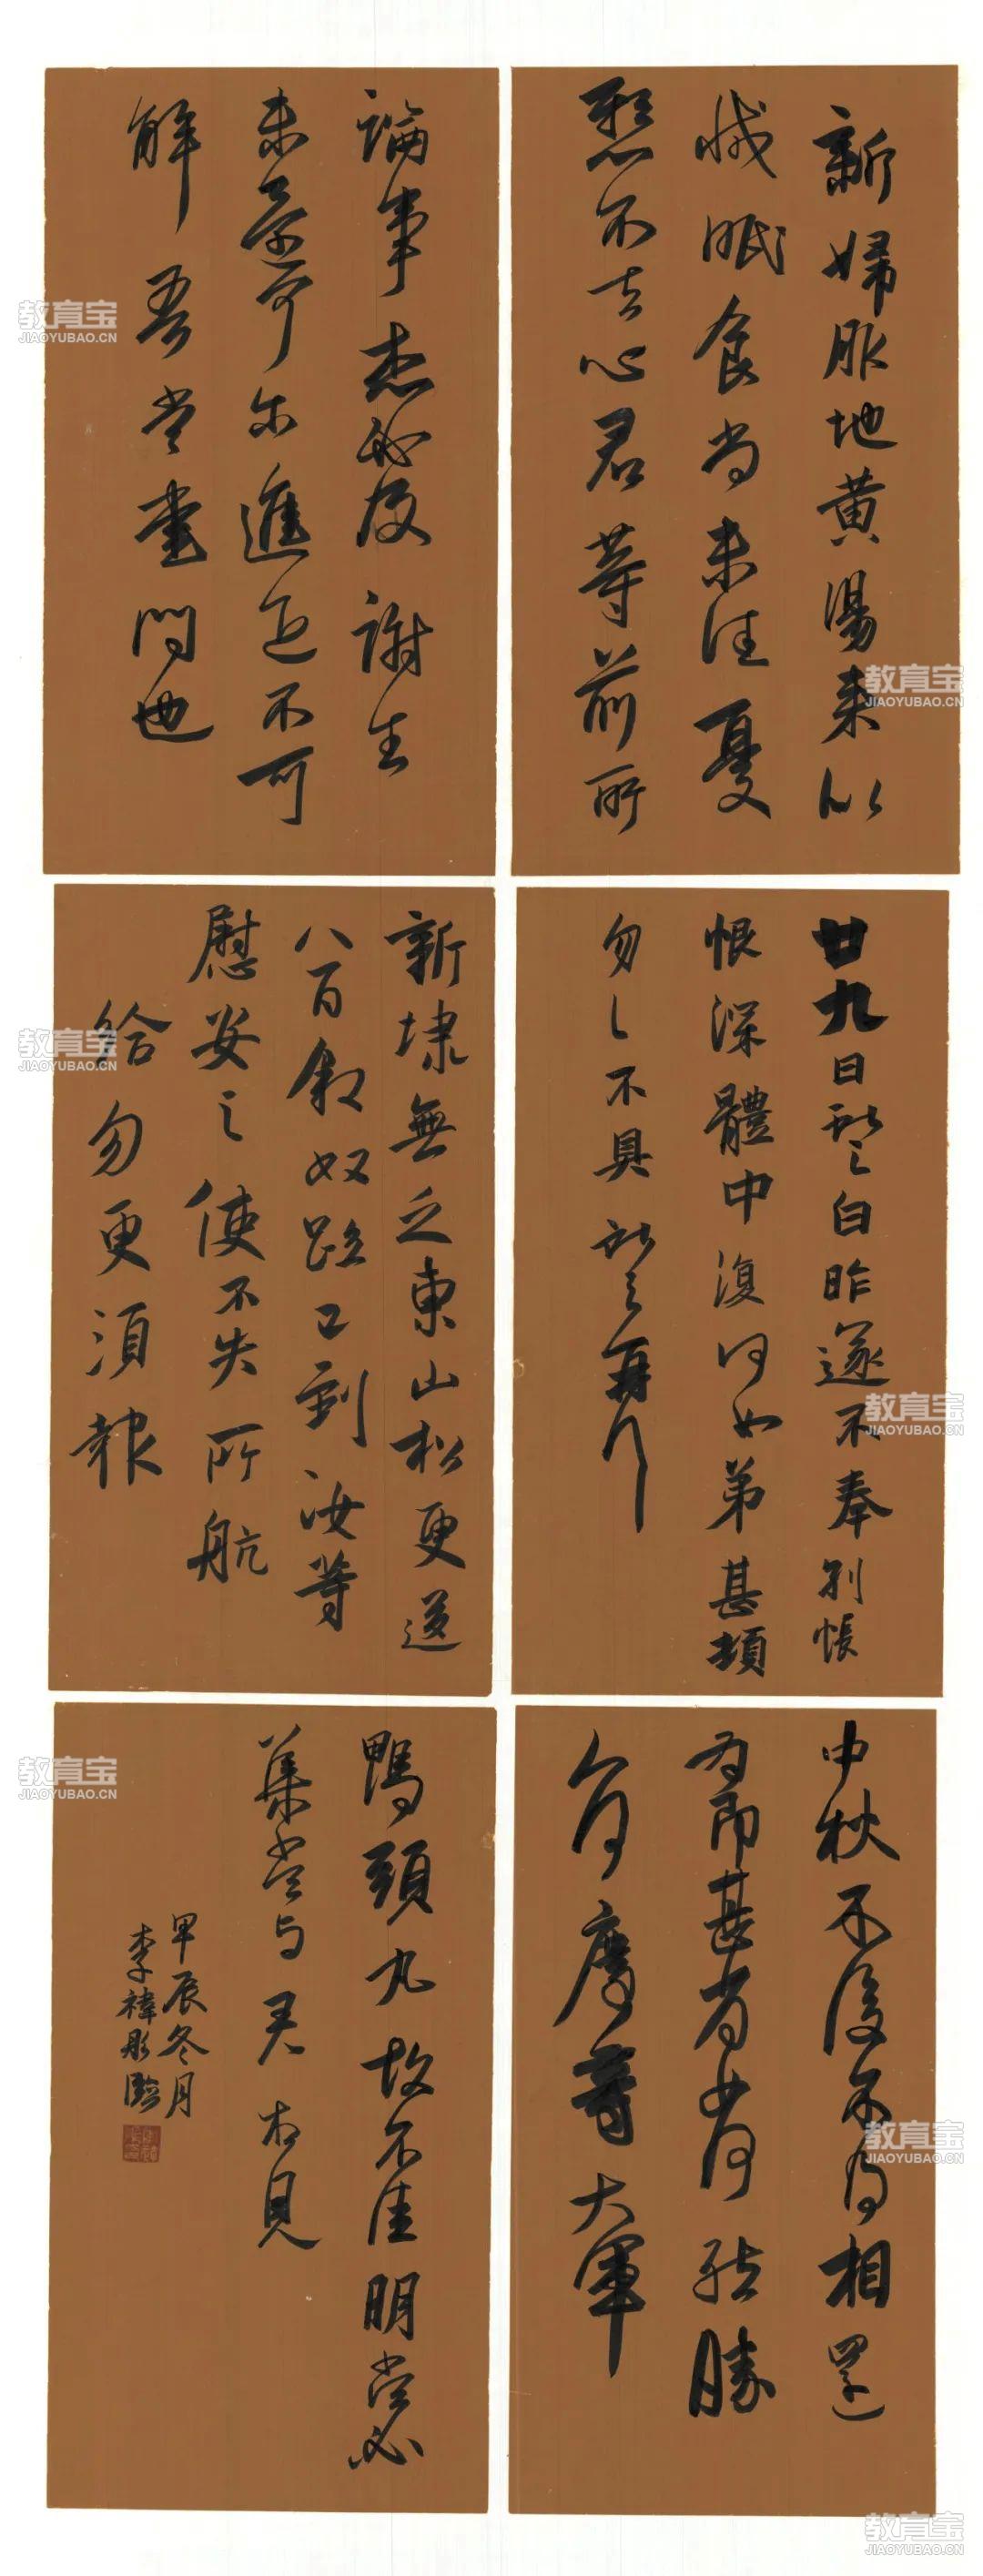 新婦服地黄湯来似
减眠食尚未佳憂
懸不去心君等前所
論事想必及謝生
未還可尔進退不可
解吾當書問也
廿九日獻之白昨遂不奉別悵
恨深體中復何如弟甚頓
匆匆不具獻之再拜
新埭無乏東山松更送
八百敘奴跂已到汝等
慰安之使不失所航
給勿更須報
中秋不復不得相還
為即甚省如何然勝
人何慶等大軍
鴨頭丸故不佳明當必
集當与君相見
甲辰冬月
李禕彤臨
教育宝
JIAOYUBAO.CN
教育宝
JIAOYUBAO.CN
教育宝
JIAOYUBAO.CN
教育宝
JIAOYUBAO.CN
教育宝
JIAOYUBAO.CN
教育宝
JIAOYUBAO.CN
教育宝
JIAOYUBAO.CN